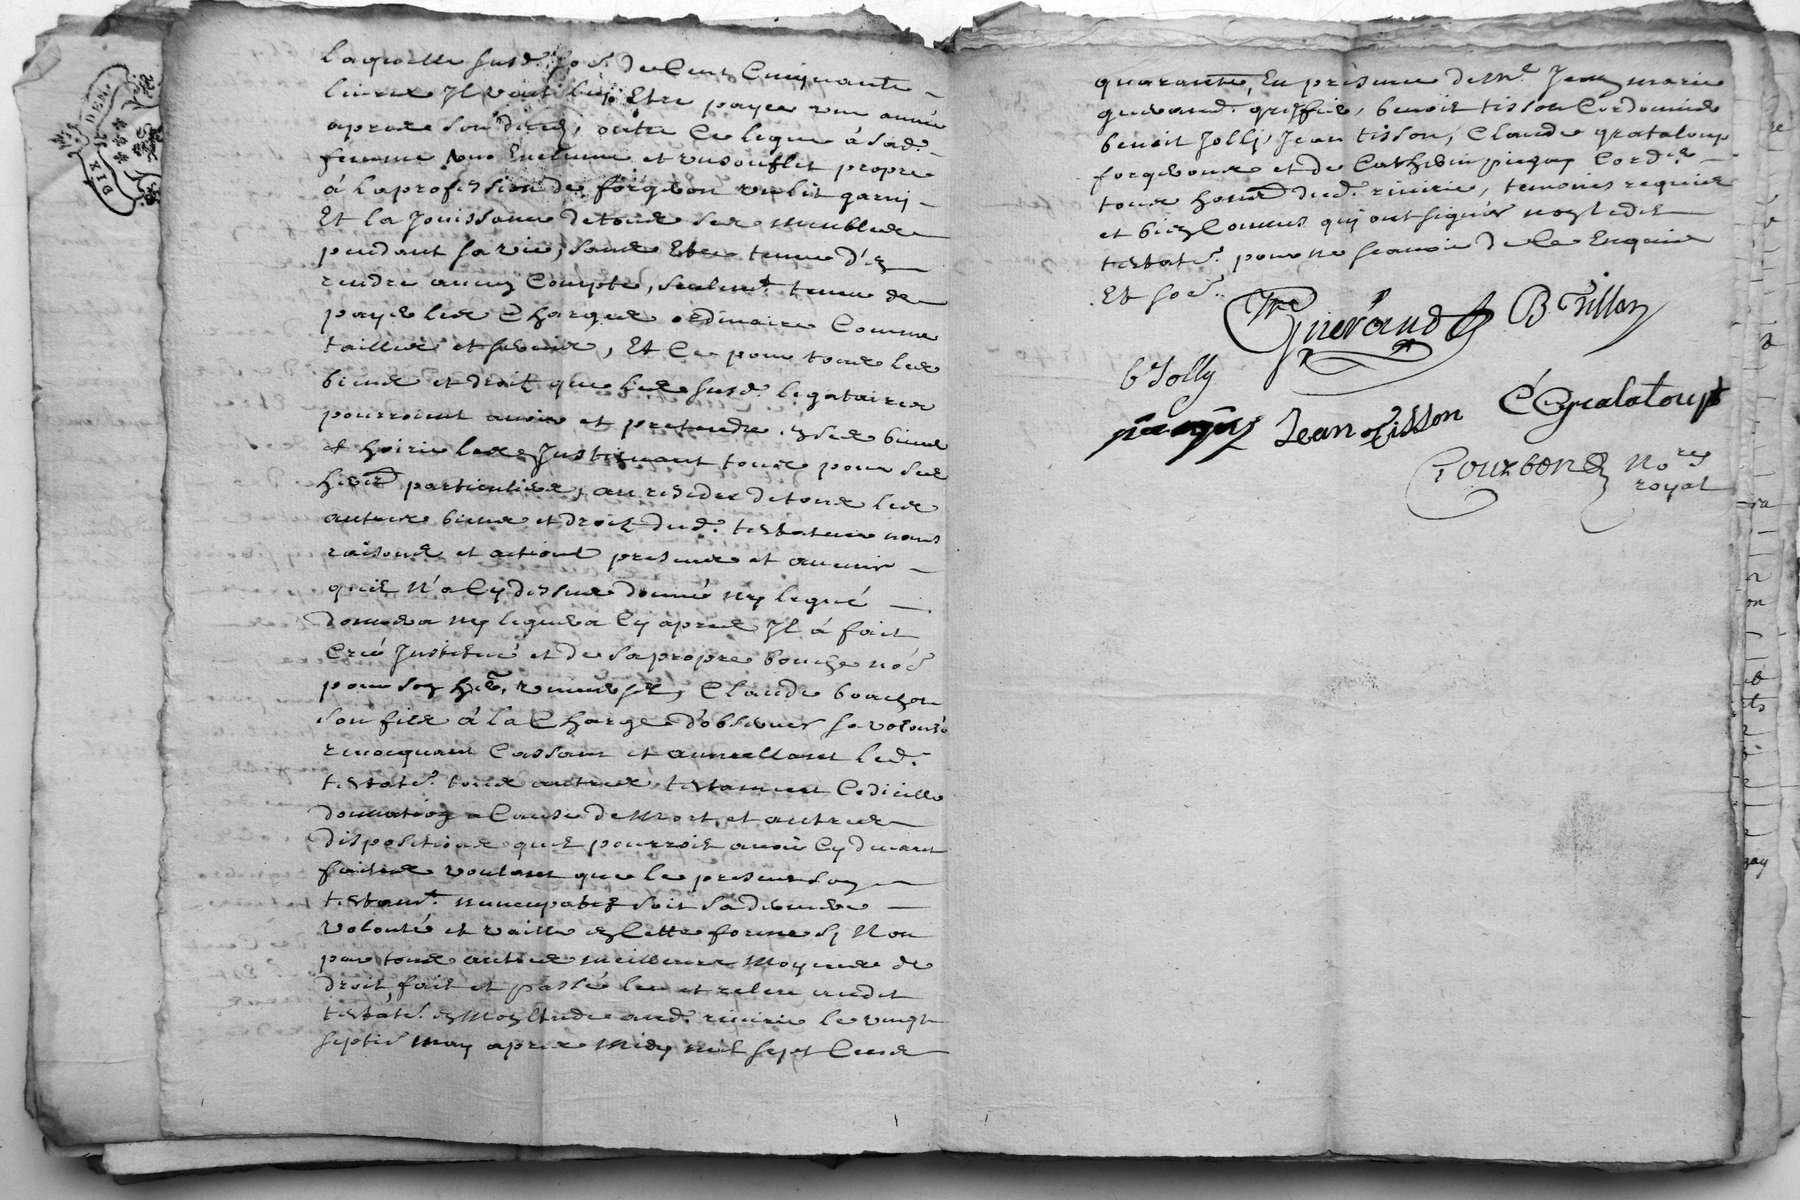 DIX DEN.
laquelle susd. so.e de Cent Cinquante
livres Il veut luy Etre payée une année
apres son deces, outre Ce legue à sad.
femme une Enclume et un soufflet propre
à la profession de forgeron un lit garni
Et la Jouissance de tous ses meubles
pendant sa vie, sans Etre tenue d'en
rendre aucun Compte, seulem.t tenue de
payer les Charges ordinaire Comme
tailles et servis, Et Ce pour tous les
biens et droit que les susd. legataires
pourroient avoir et pretendre en ses biens
et hoirie les Instituant tous pour ses
her. particuliers, au residu de tous les
autres biens et droit dud. testateur noms
raisons et actions presens et avenir
quil N'a Cy dessus donné ny legué
donnera ny leguera Cy apres Il à fait
Créé Institué et de sa propre bouche no.é
pour son her. universel, Claude bouchon
son fils à la Charge d'observer sa volonté
revocquant Cassant et annullant led.
testat.r tous autres testament Codicille
donnation a Cause de Mort et autres
dispositions quil pourroit avoir Cy devant
faites voulant que le present son
testam.t nuncupatif soit sa derniere
volonté et vaille en Cette forme sy Non
par tous autres meilleurs Moyens de
droit, fait et passé leu et releu audit
testat.r en Mon Etude aud. riverie le vingt
septie May apres Midy mil sept Cens
quarante, En presence de M.e Jean marie
guerand greffier, benoit tisson Cordonnier
benoit Jolly, Jean tisson, Claude grataloup
forgerons et de Catherin Cord.r
tous hom. dud. riverie, temoins requis
et bien Connus qui ont signés non ledit
testat.r pour ne scavoir de Ce Enquis
Et so.é
Guerand B Tisson
b Jolly
Jean Tisson C Grataloup
Gourbon No.re
royal